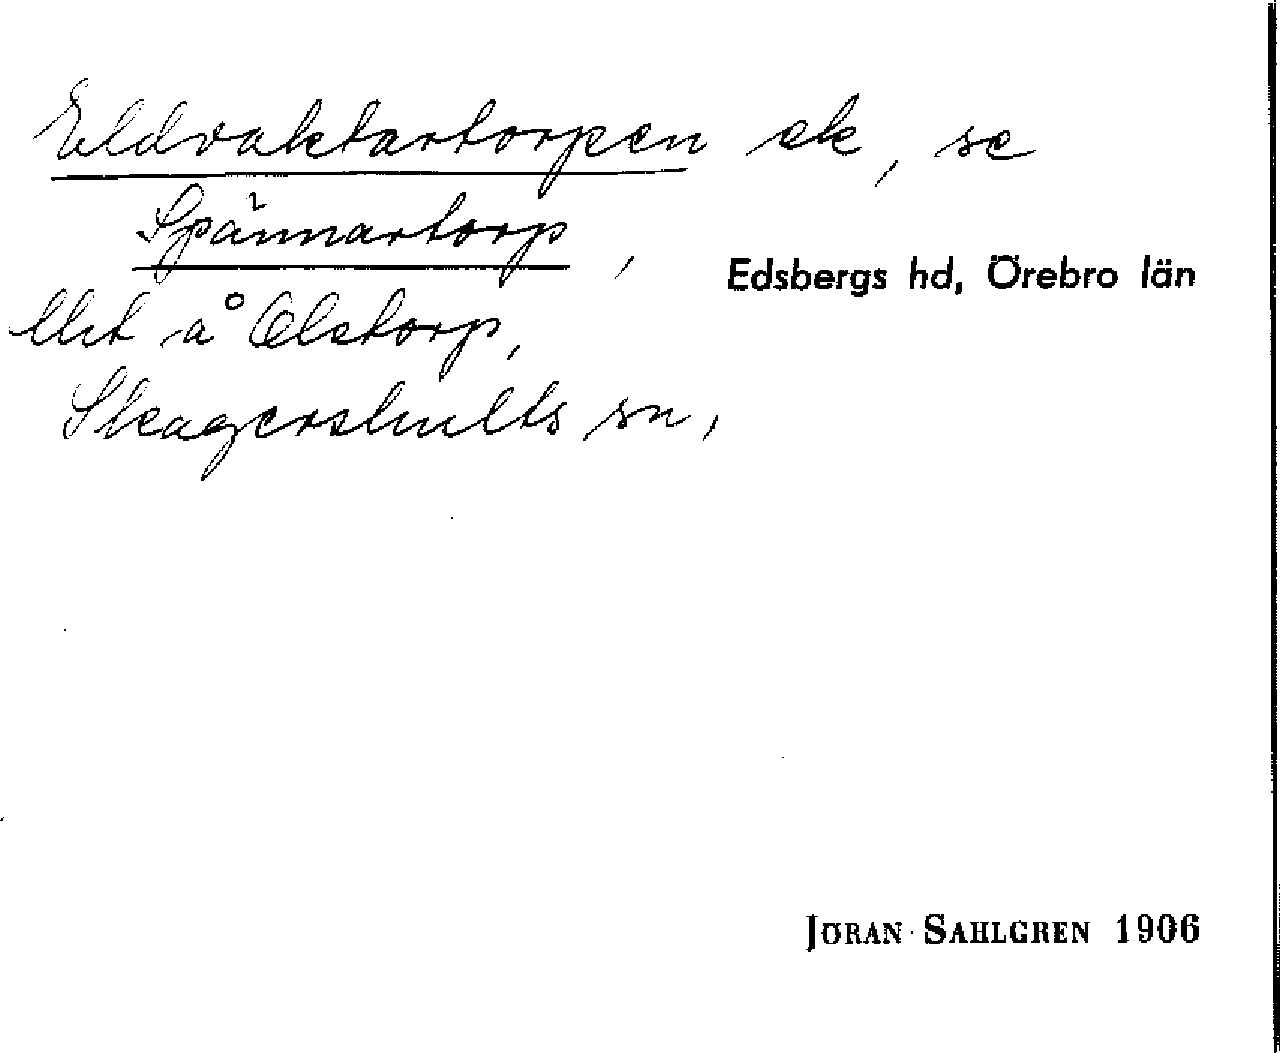 Eldvaktartorpen ek, se
Spännartorp,
Edsbergs hd, Örebro län
llet å Olstorp,
Skagershults sn,
JÖRAN SAHLGREN 1906